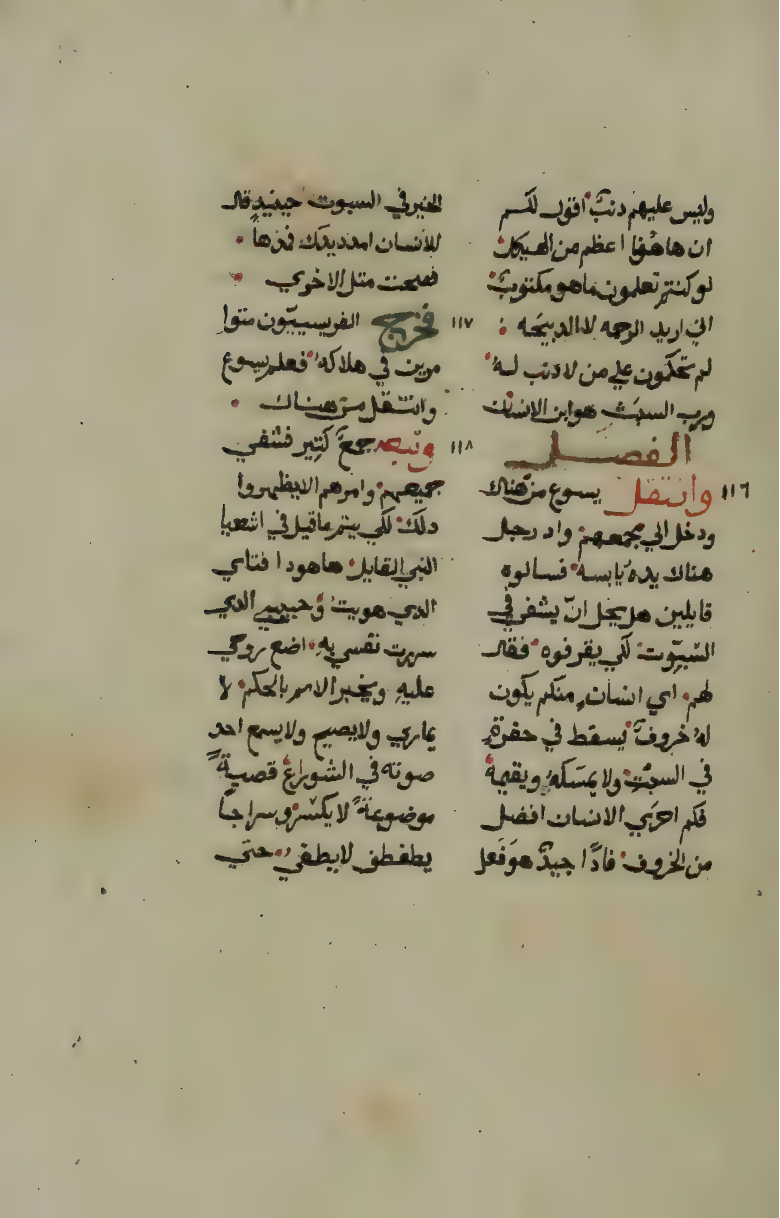 وليس عليهم دنبٌ اقول لكم
ان هاهنا اعظم من الهيكل
لو كنتم تعلمون ما هو مكتوب
اني اريد الرحمه لا الدبيحه
لم تحكمون علي من لا دنب له
ورب السبت هو ابن الانسان
الفصل
١١٦ وانتقل يسوع من هناك
ودخل الي مجمعهم واد رجل
هناك يده يابسه فسالوه
قايلين هل يحل ان يشفي في
السبوت لكي يقرفوه فقال
لهم اي انسان منكم يكون
له خروف يسقط في حفرة
في السبت ولا يمسكه ويقيمه
فكم احري الانسان افضل
من الخروف فادًا جيد هو فعل
الخير في السبوت حينيد قال
للانسان امدد يدك فمدها
فصحت متل الاخري
١١٧ فخرج الفريسيون متوا
مرين في هلاكه فعلم يسوع
وانتقل من هناك
١١٨ وتبعه جمع كتير فشفي
جميعهم وامرهم الا يظهروا
دلك لكي يتم ما قيل في اشعيا
النبي القايل هاهودا فتاي
الدي هويت وحبيبي الدي
سرت نفسي به اضع روحي
عليه ويخبر الامم بالحكم لا
يماري ولا يصيح ولا يسمع احد
صوته في الشوارع قصبةً
موضوعةً لا يكسر وسراجًا
يطفطف لا يطفي حتي